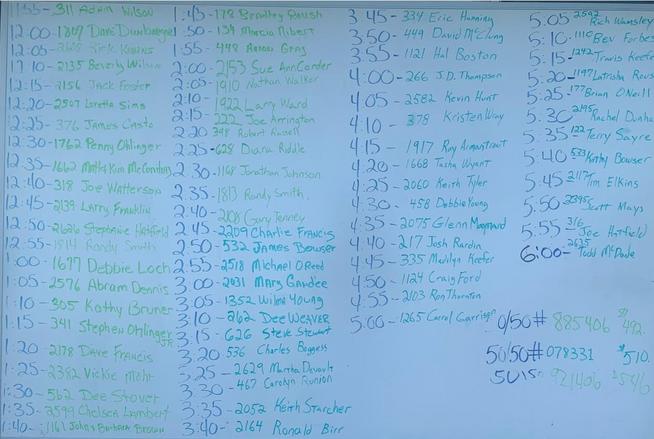 11:55 - 311 Adam Wilson
12:00 - 1807
12:05 - Kirk
12:10 - 2135 Beverly Wilson
12:15 - 2156 Jack Foster
12:20 - 2507 Loretta Sims
12:25 - 376 James Casto
12:30 - 1762 Penny Ohlinger
12:35 - 1662 Martha Kim
12:40 - 318 Joe Watterson
12:45 - 2139 Larry Franklin
12:50 - 2626 Stephanie Hatfield
12:55 - 1814 Randy Smith
1:00 - 1677 Debbie Loch
1:05 - 2576 Abram Dennis
1:10 - 305 Kathy Bruner
1:15 - 341 Stephen Ohlinger JR
1:20 - 2178 Dave Francis
1:25 - 2382 Vickie
1:30 - 562 Dee Stover
1:35 - 2599 Chelsea Lambert
1:40 - 1161 John & Barbara Brown
1:45 - 178 Bradley
1:50 - 134 Marcia
1:55 - 448 Aaron Gray
2:00 - 2153 Sue Ann Carder
2:05 - 1910 Nathan Walker
2:10 - 1922 Larry Ward
2:15 - 222 Joe Arrington
2:20 398 Robert Russell
2:25 - 628 Diana Riddle
2:30 - 1168 Jonathan Johnson
2:35 - 1813 Randy Smith
2:40 - 2108 Gary Tenney
2:45 - 2209 Charlie Francis
2:50 - 532 James Bowser
2:55 - 2518 Michael O Reed
3:00 - 2031 Mary Gandee
3:05 - 1352 Wilma Young
3:10 - 262 Dee Weaver
3:15 - 626 Steve Stewart
3:20 536 Charles Boggess
3:25 - 2629 Martha
3:30 - 467 Carolyn Runion
3:35 - 2052 Keith Starcher
3:40 - 2164 Ronald Birr
3:45 - 334 Eric Hanning
3:50 - 449 David McClung
3:55 - 1121 Hal Boston
4:00 - 266 J.D. Thompson
4:05 - 2582 Kevin Hunt
4:10 - 378 Kristen Wray
4:15 - 1917 Ray Armantrout
4:20 - 1668 Tasha Wyant
4:25 - 2060 Keith Tyler
4:30 - 458 Debbie Young
4:35 - 2075 Glenn Maynard
4:40 - 217 Josh Rardin
4:45 - 335 Madilyn Keefer
4:50 - 1124 Craig Ford
4:55 - 2103 Ron Thornton
5:00 - 1265 Carrol Garrison
5:05 - 2592 Rich Wamsley
5:10 - 1110 Bev Forbes
5:15 - 1242 Travis Keefer
5:20 - 1197 Latrisha
5:25 - 177 Brian O'Neill
5:30 2195 Rachel
5:35 122 Terry Sayre
5:40 533 Kathy Bowser
5:45 2117 Tim Elkins
5:50 2395 Scott Mays
5:55 316 Joe Hatfield
6:00 - 2635 Todd McDade
0/50# 885406 $492.
50/50# 078331 $510.
50/50 921406